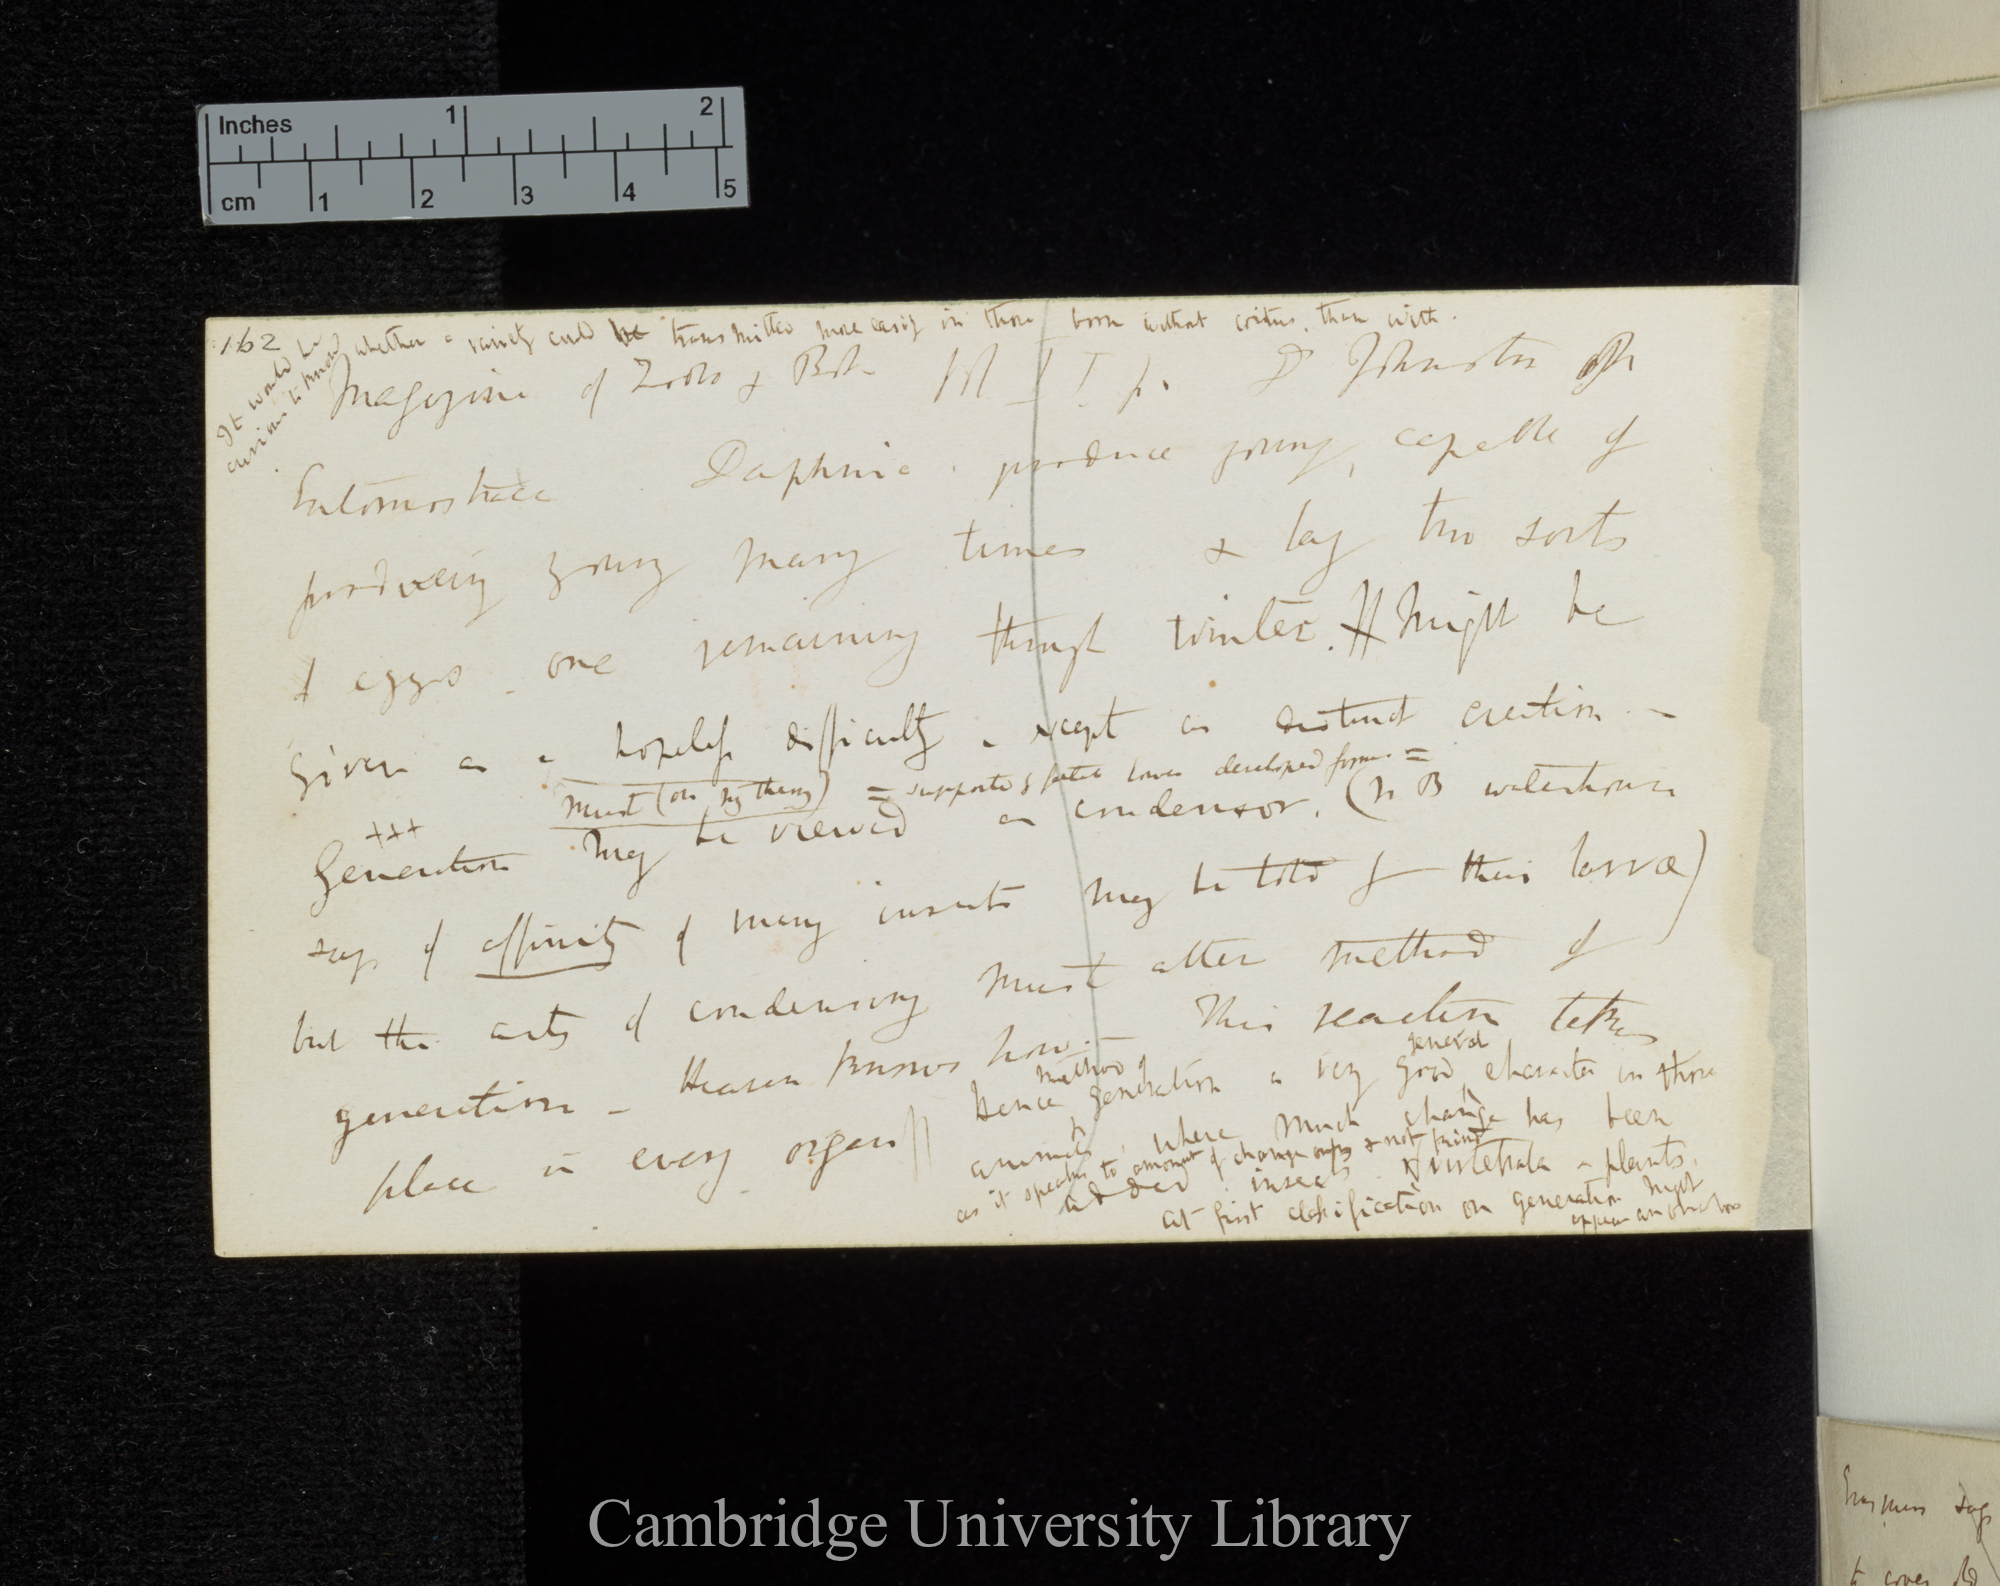 Inches 1 2
cm 1 2 3 4 5
162
It would be
curious to know whether a variety could be transmitted more easily in those born without coitus. than with.
Magazine of Zoolo & Bot. Vol I p. Dr Johnston on
Entomostraca Daphnia. produce young, capable of
producing young many times & lay two sorts
of eggs. one remaining through winter. Might be
given as a hopeless difficulty. except as distinct creation.—
must (on my theory) = supports lower developed forms =
+++
Generation may be viewed as condensor. (N B waterhouse
says of affinity of many insects may be told from their larvæ)
but the acts of condensing must alter method of
generation — Heaven knows how.— This reaction takes
place in every organ
method of general
Hence generation a very good character in those
animals, where much change has been
as it speaks to amount of change & not
added. insects. vertebrata — plants.
at first classification on generation might
appear
Erasmus says
Cambridge University Library